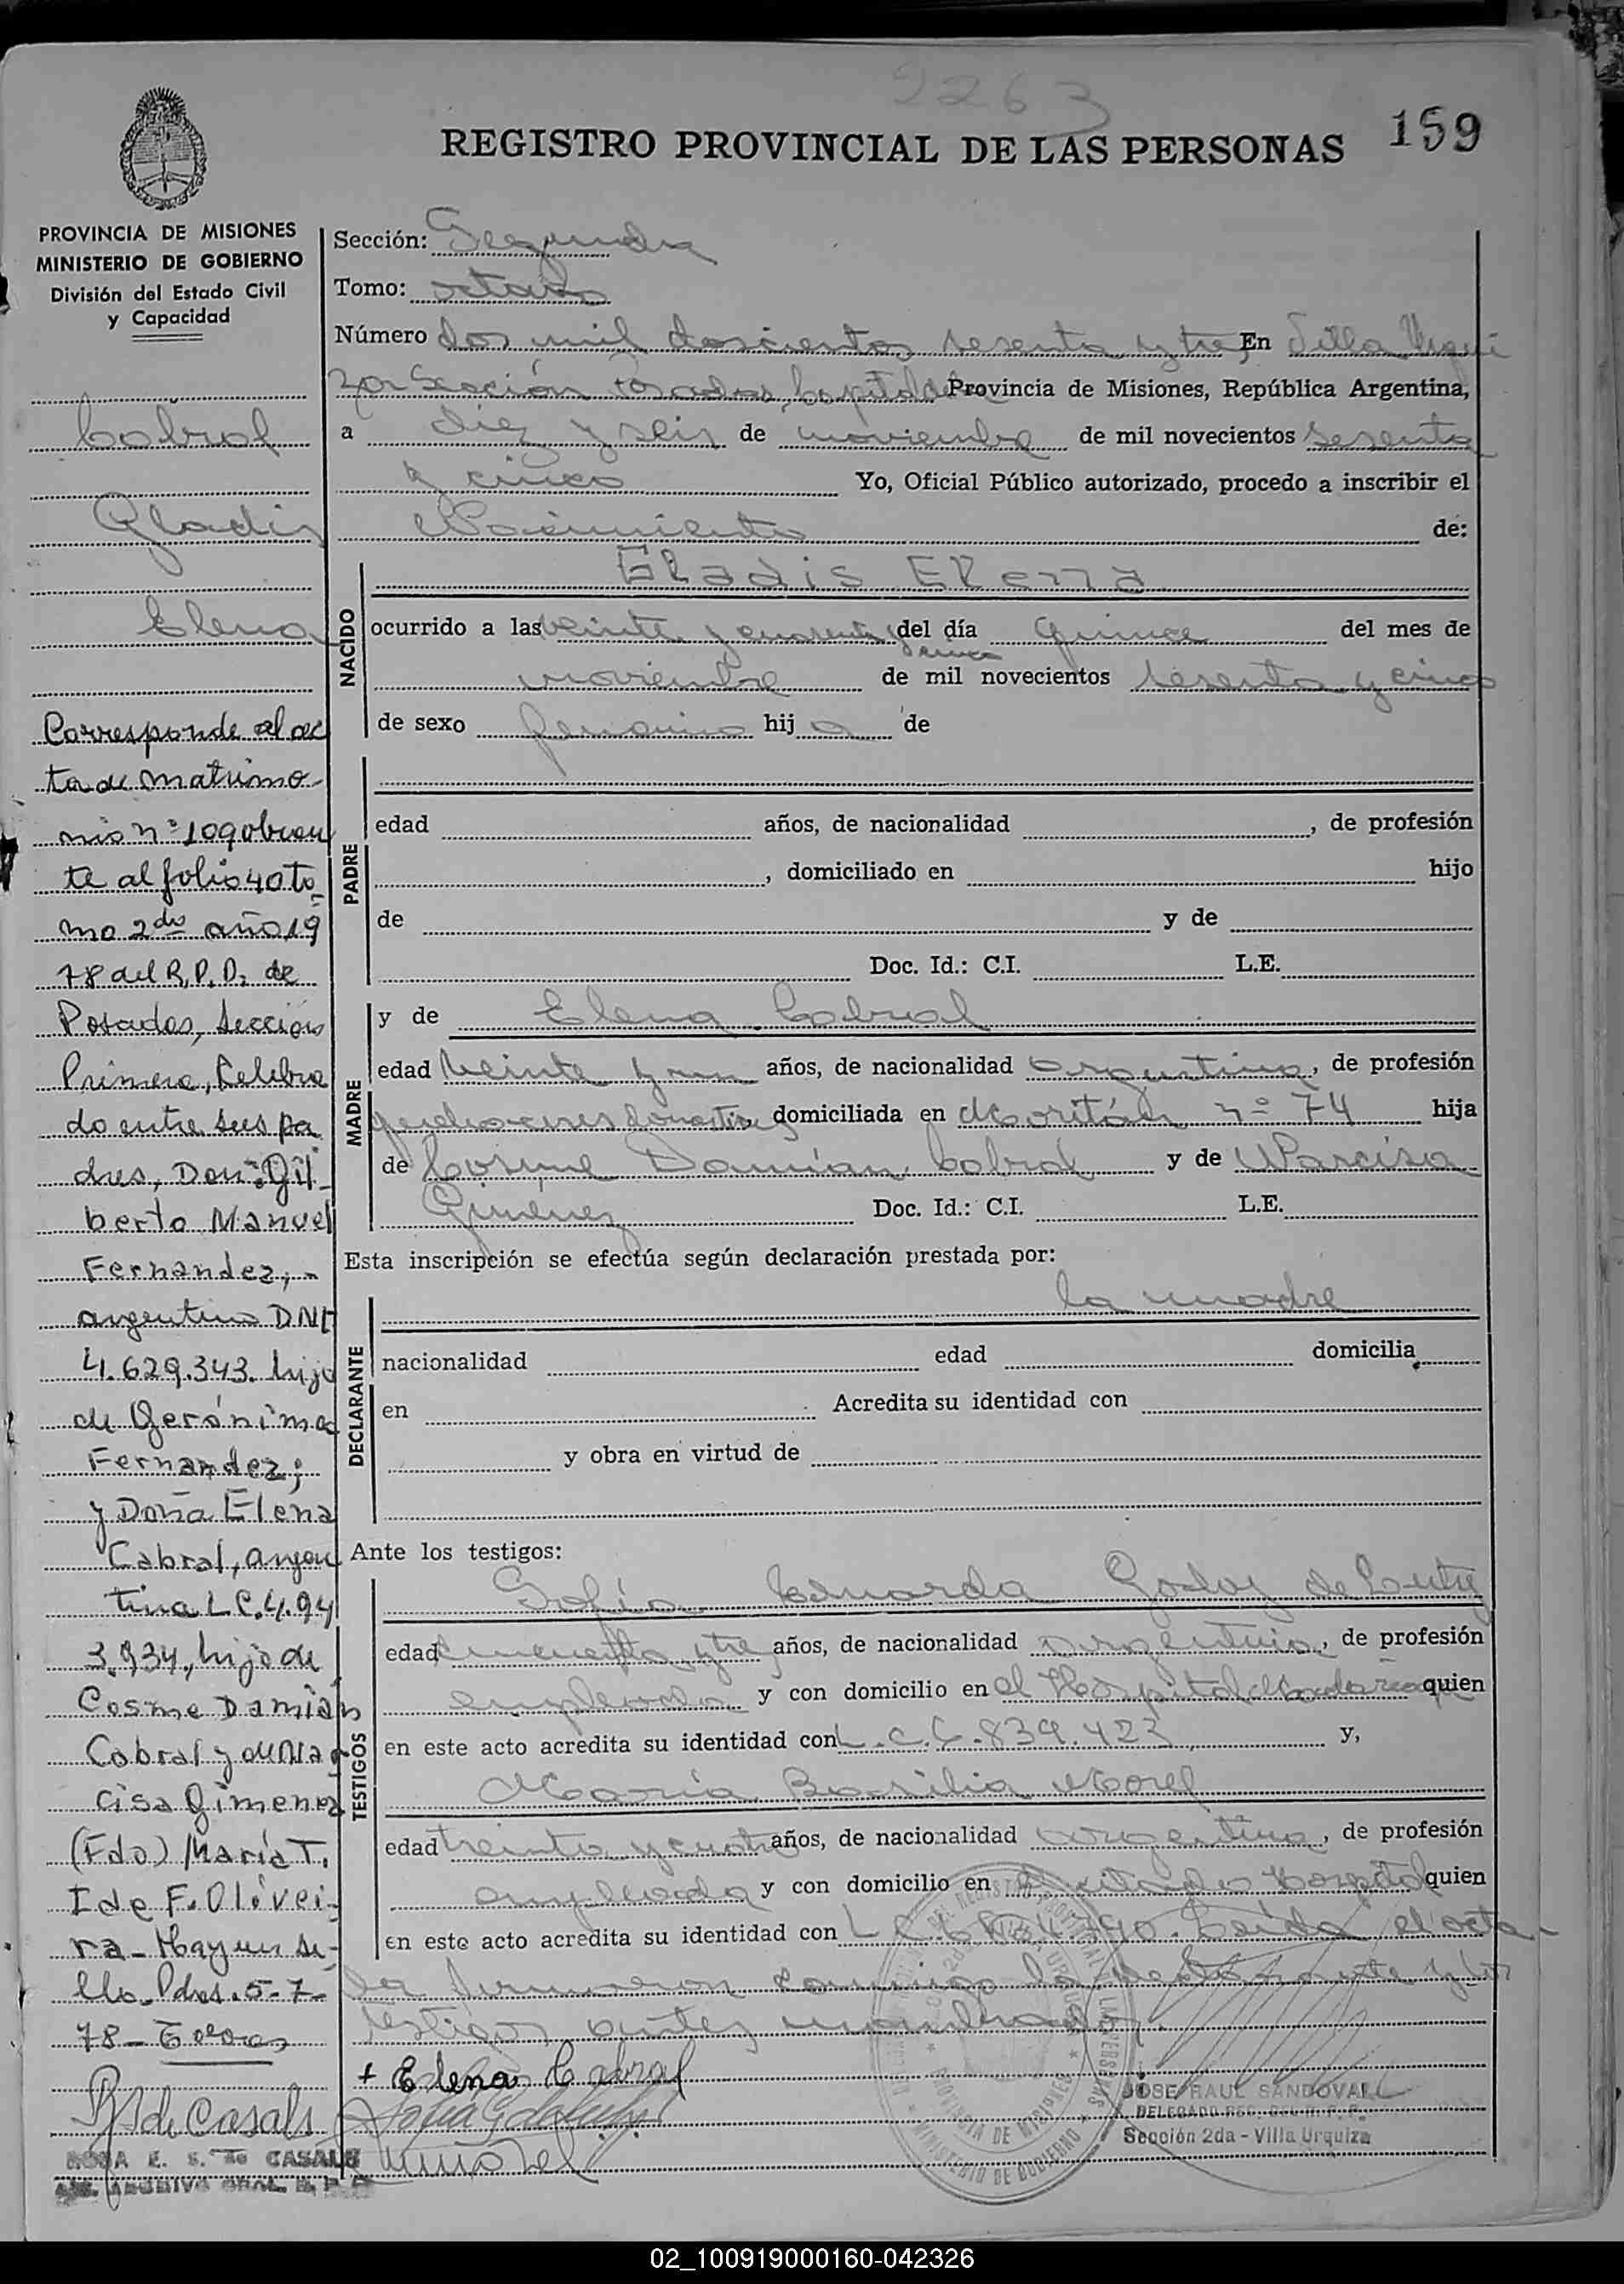 2263
REGISTRO PROVINCIAL DE LAS PERSONAS 159
PROVINCIA DE MISIONES
MINISTERIO DE GOBIERNO
División del Estado Civil
y Capacidad
Cabral
Gladis
Elena
Corresponde al ac
ta de matrimo-
nio nº 109 obran
te al folio 40 to
mo 2do año 19
78 del R.P.P. de
Posadas, Sección
Primera, Celebra
do entre sus pa
dres, Don: Gil
berto Manuel
Fernandez, -
argentino DNI
4.629.343. hijo
de Gerónimo
Fernandez;
y Doña Elena
Cabral, argen
tina L.C. 4.94
3.934, hija de
Cosme Damián
Cabral y de Nar
cisa Gimenez
(Fdo) María T.
I de F. Olivei-
ra - Hay un Se-
llo. Pdas. 5-7-
78 -
R S de Casals
ROSA E. S. de CASALS
Sección: Segunda
Tomo: octavo
Número dos mil doscientos sesenta y tres En Villa Urqui
za Sección Posadas, Capital de Provincia de Misiones, República Argentina,
a diez y seis de noviembre de mil novecientos sesenta
y cinco Yo, Oficial Público autorizado, procedo a inscribir el
Nacimiento de:
NACIDO
Gladis Elena
ocurrido a las veinte y cuarenta y del día quince del mes de
cinco
noviembre de mil novecientos sesenta y cinco
de sexo femenino hij a de
PADRE
edad años, de nacionalidad , de profesión
, domiciliado en hijo
de y de
Doc. Id.: C.I. L.E.
MADRE
y de Elena Cabral
edad veinte y un años, de nacionalidad argentina, de profesión
quehaceres domésticos domiciliada en nº 74 hija
de Cosme Damián Cabral y de Narcisa
Giménez Doc. Id.: C.I. L.E.
Esta inscripción se efectúa según declaración prestada por:
DECLARANTE
la madre
nacionalidad edad domicilia
en Acredita su identidad con
y obra en virtud de
Ante los testigos:
TESTIGOS
Sofía Eduarda Godoy de
edad cincuenta y tres años, de nacionalidad argentina, de profesión
empleada y con domicilio en el Hospital Madariaga quien
en este acto acredita su identidad con L.C. 6.839.423 y,
María Basilia Morel
edad treinta y cuatro años, de nacionalidad argentina, de profesión
empleada y con domicilio en el citado Hospital quien
en este acto acredita su identidad con L.C. Leída el acta
la firmaron conmigo la declarante y los
testigos antes nombrados.
+ Elena Cabral
JOSE RAUL SANDOVAL
DELEGADO REG. DEL R. P. P.
Sección 2da - Villa Urquiza
PROVINCIA DE MISIONES
MINISTERIO DE GOBIERNO
02_100919000160-042326